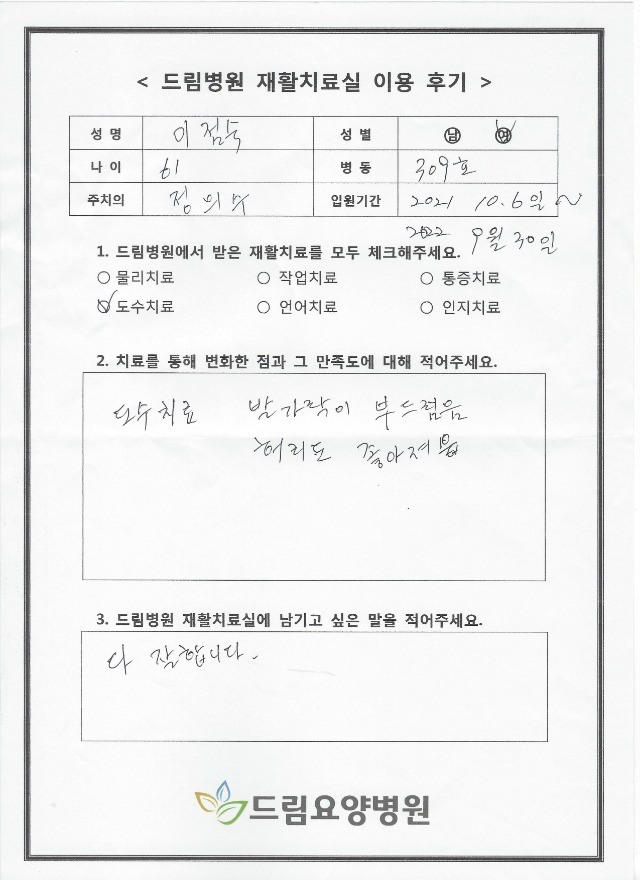 < 드림병원 재활치료실 이용 후기 >
성 명 이점숙 성 별 남 여
나 이 61 병 동 309호
주치의 정의수 입원기간 2021 10.6일 ~
2022 9월 30일
1. 드림병원에서 받은 재활치료를 모두 체크해주세요.
○ 물리치료 ○ 작업치료 ○ 통증치료
○ 도수치료 ○ 언어치료 ○ 인지치료
2. 치료를 통해 변화한 점과 그 만족도에 대해 적어주세요.
도수치료 발가락이 부드럼음
허리도 좋아져음
3. 드림병원 재활치료실에 남기고 싶은 말을 적어주세요.
다 잘합니다.
드림요양병원